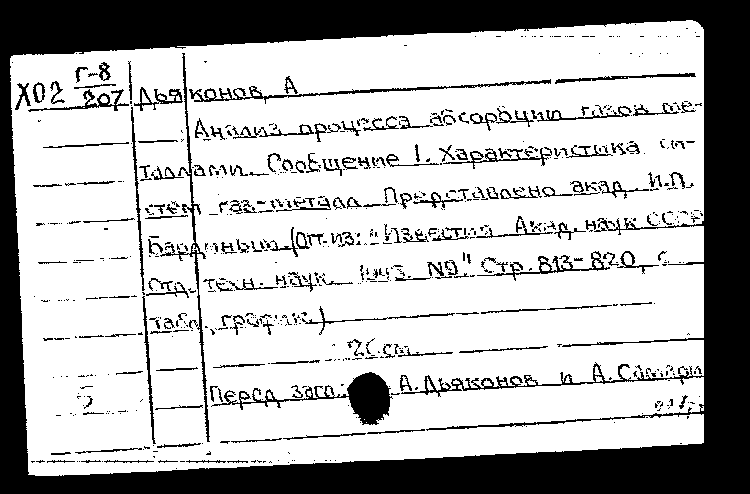 Х02 Г-8/207 Дьяконов, А
Анализ процесса абсорбции газов ме-
таллами. Сообщение 1. Характеристика си-
стем газ-металл. Представлено акад. И.П.
Бардиным. (Отт. из: "Известия Акад. наук СССР
Отд. техн. наук. №9." Стр. 813-820, с
табл., график.)
26 см.
Перед загл.: А. Дьяконов и А. Самари
5